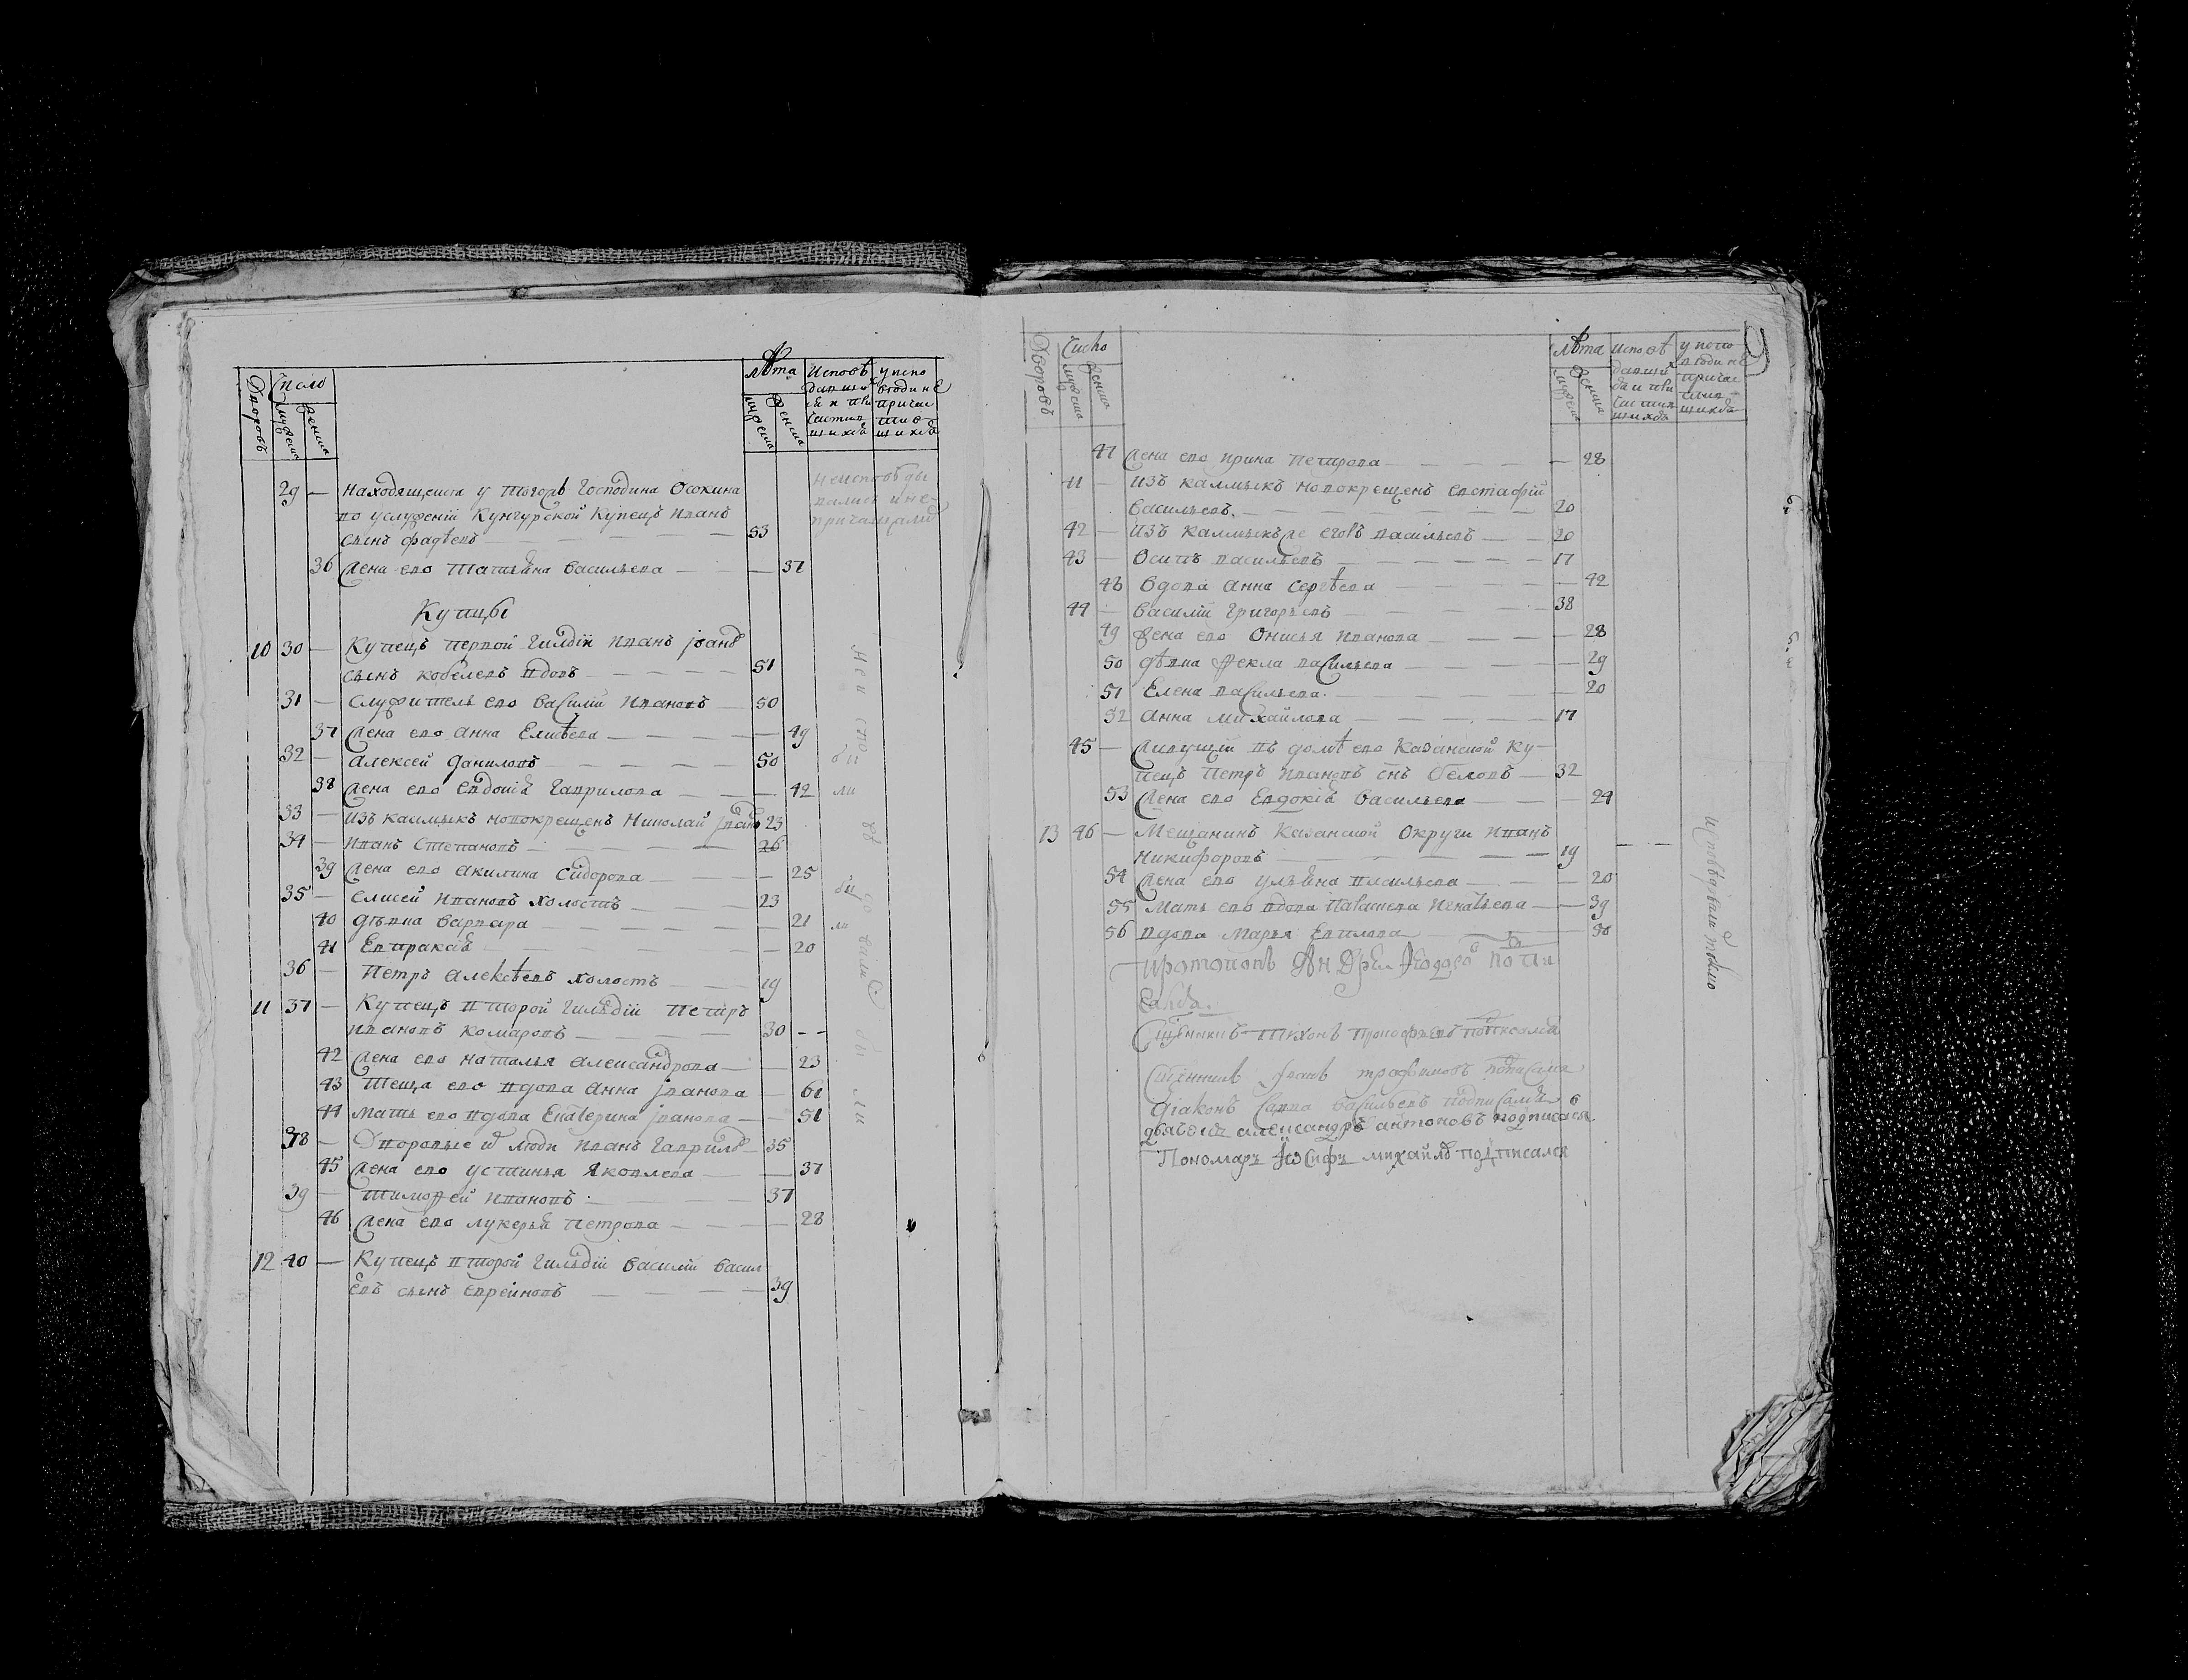 Дворовъ Число Лѣта Исповѣ у испо
мужеска женска мужеска женска
29 — Находящеися у тогожъ Господина Осокина
по услужению Кунгурской Купецъ иванъ
сынъ фадѣевъ — 53
неисповѣды
вались и не
причащались
36 жена ево татьяна васильева — 37
Купцы
10 30 — Купецъ первой гилдіи иванъ іванъ
сынъ кобелевъ вдовъ — 51
31 — Служитель ево василіи ивановъ — 50
37 жена ево анна Елисѣева — 49
32 — алексеи даниловъ — 50
38 жена ево Евдокиѣ гаврилова — 42
33 — изъ калмыкъ новокрещенъ Николаи іванъ 23
34 — иванъ Степановъ — 26
39 жена ево акилина Сидорова — 25
35 — елисеи ивановъ холостъ — 23
40 дѣвка варвара — 21
41 Евпраксѣ — 20
36 — Петръ алексѣевъ холостъ — 19
11 37 — Купецъ второй гилдіи Петръ
ивановъ комаровъ — 30 --
42 жена ево наталья александрова — 23
43 теща ево вдова анна іванова — 61
44 мать ево вдова Екатерина іванова — 51
38 — Дворовые ѿ люди иванъ гаврилъ — 35
45 жена ево устинья Яковлева — 37
39 — тимоѳеи ивановъ — 37
46 жена ево лукерья Петрова — 28
12 40 — Купецъ второй гилдіи василіи васил
евъ сынъ евреиновъ — 39
Дворовъ Число Лѣта Исповѣ у испо
мужеска женска мужеска женска
47 жена ево ирина Петрова — 28
41 — изъ калмыкъ новокрещенъ евстафіи
васильевъ — 20
42 — изъ калмыкъ же егоръ васильевъ — 20
43 — Осипъ васильевъ — 17
48 вдова анна сергѣева — 42
44 — василіи григорьевъ — 38
49 жена ево Онисья иванова — 28
50 дѣвка ѳекла васильева — 29
51 Елена васильева — 20
52 анна михаилова — 17
45 — живущіи въ домѣ ево казанской ку
пецъ Петръ ивановъ снъ беловъ — 32
53 жена ево Евдокиѣ васильева — 24
13 46 — Мещанинъ казанской округи иванъ
никифоровъ — 19 — —
54 жена ево ульяна васильева — 20
55 мать ево вдова Игнатьева — 39
56 вдова марья — 30
исповѣдывались токмо
протопопъ Андреи Ѳедоро
Сщенникъ Тихонъ Прокофьевъ подписался
Сщенникъ Іванъ трофимовъ подписался
діаконъ Савва васильевъ подписался
александръ антоновъ подписася
Пономарь Іѡсифъ михаилѡ подписался